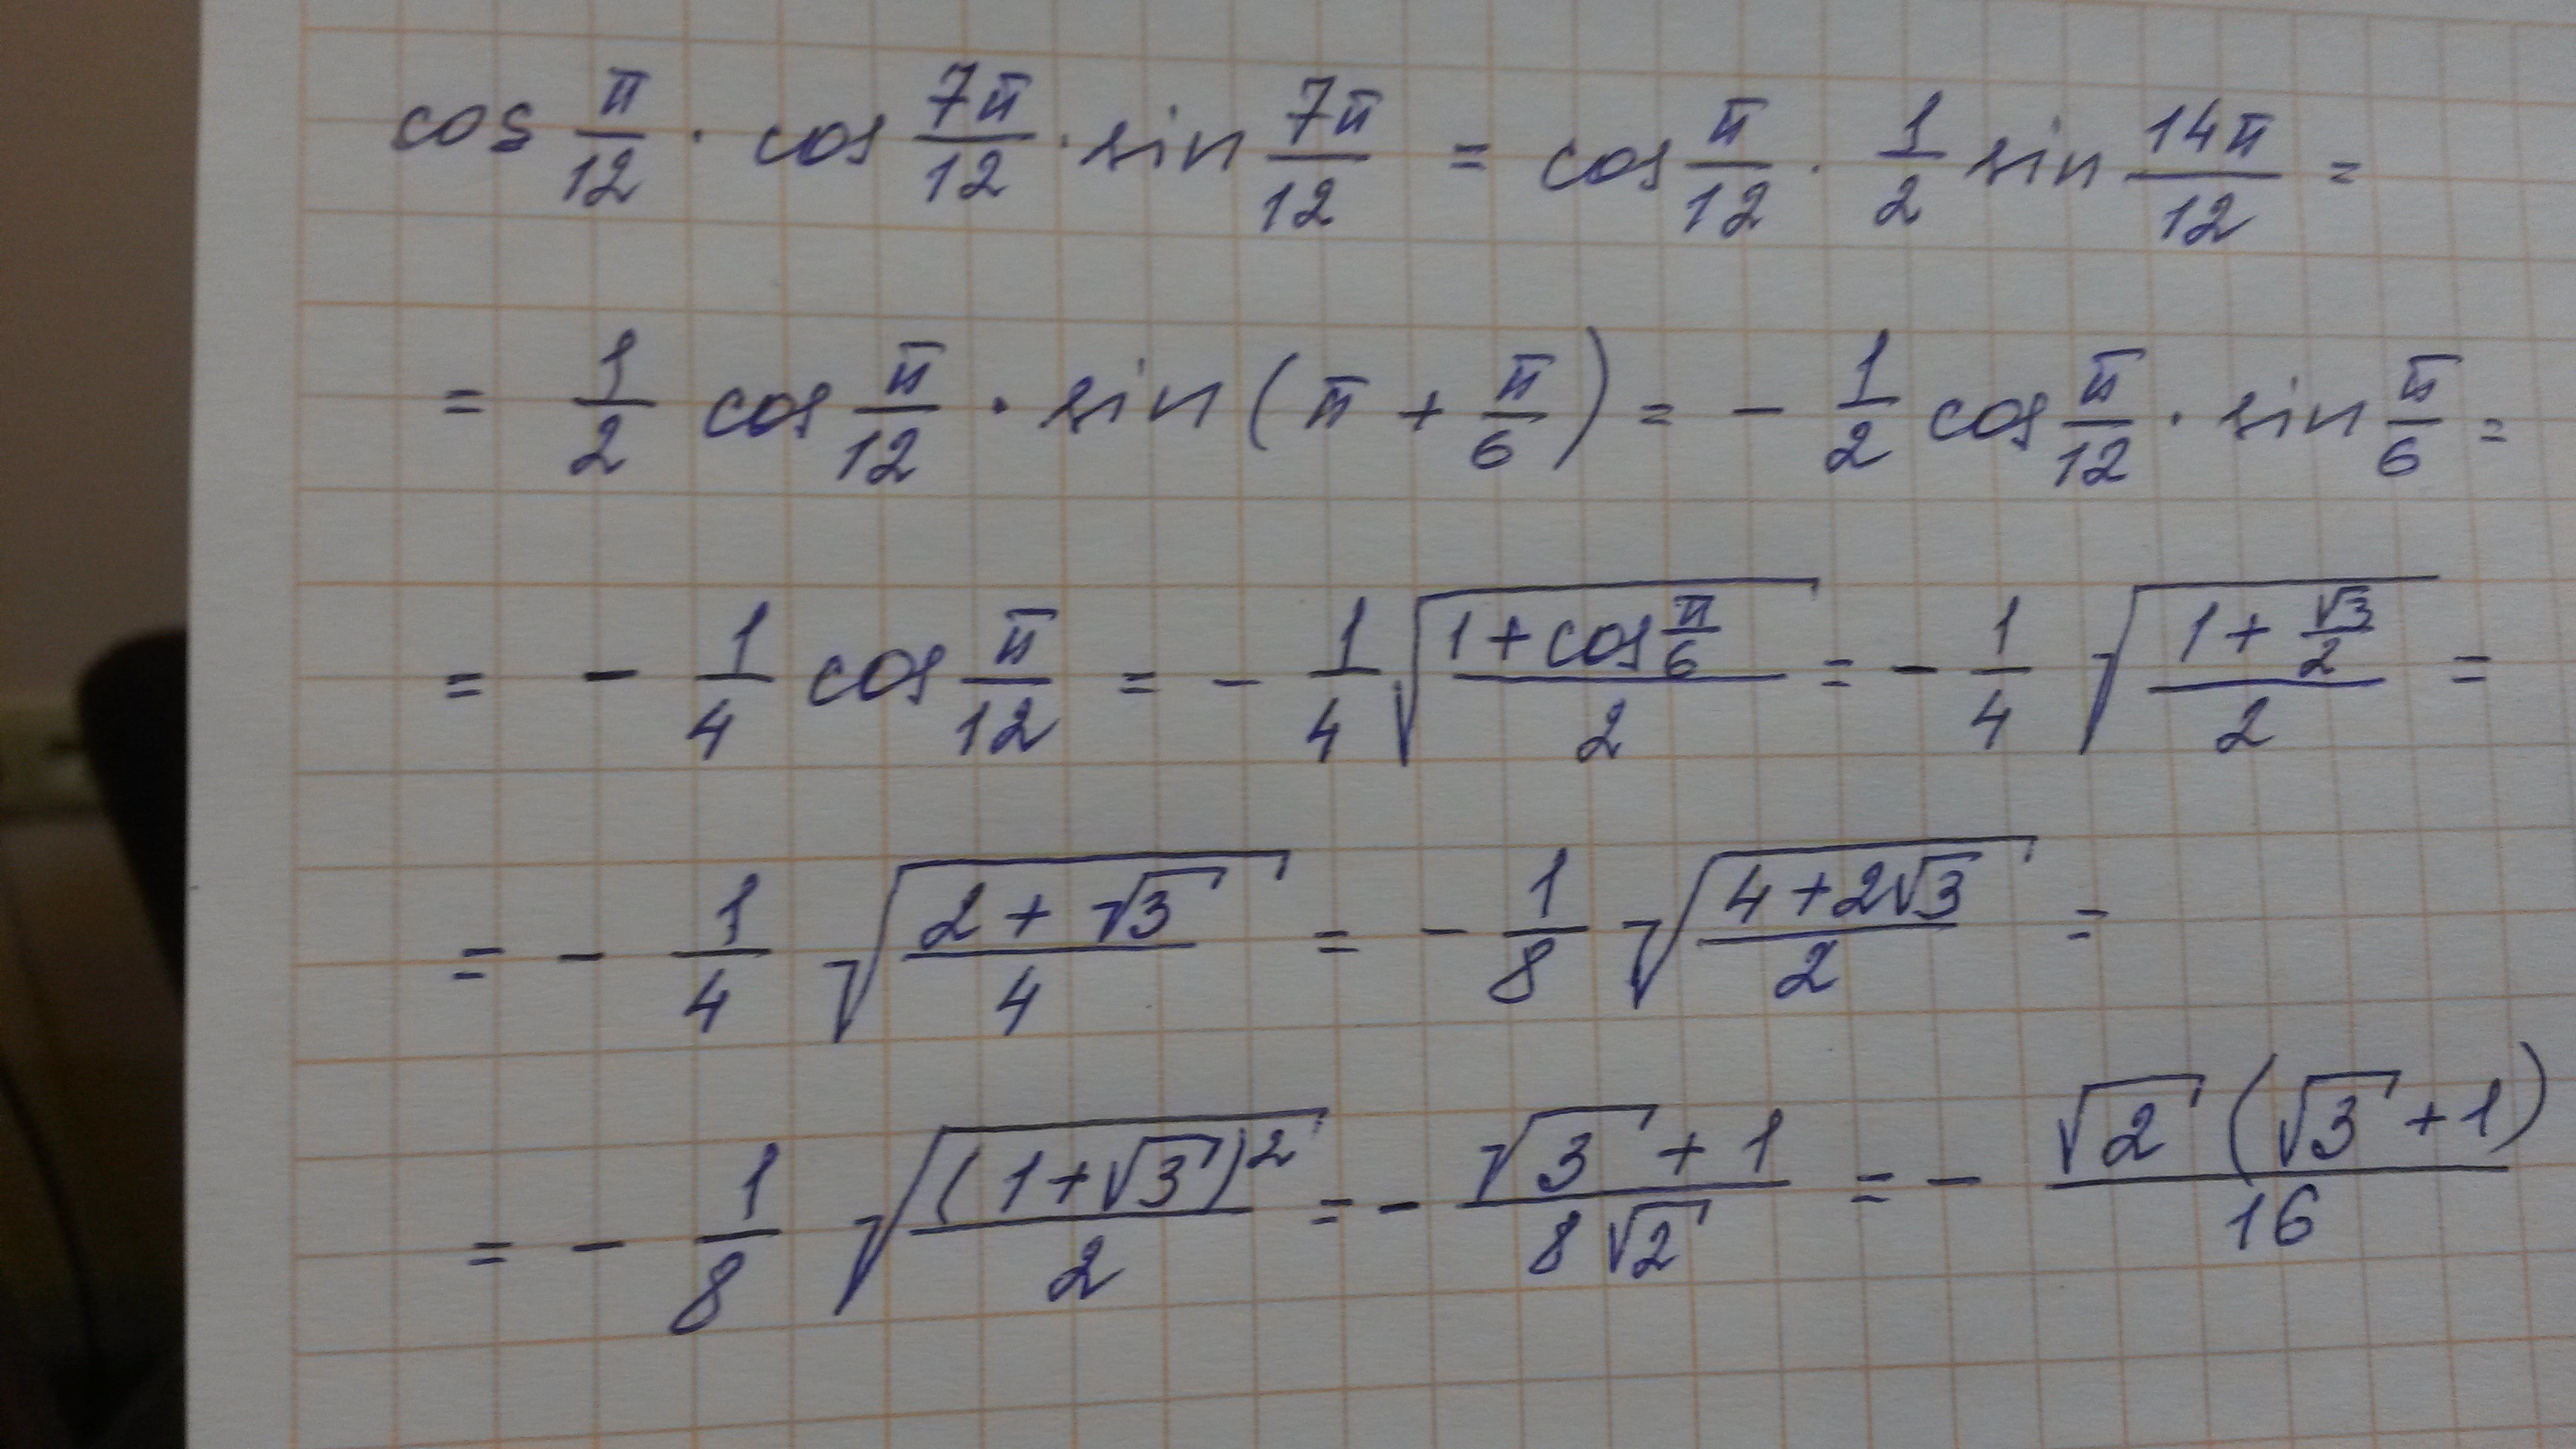 cos π/12 · cos 7π/12 · sin 7π/12 = cos π/12 · 1/2 sin 14π/12 =
= 1/2 cos π/12 · sin (π + π/6) = - 1/2 cos π/12 · sin π/6 =
= - 1/4 cos π/12 = - 1/4 √((1 + cos π/6)/2) = - 1/4 √((1 + √3/2)/2) =
= - 1/4 √((2 + √3)/4) = - 1/8 √((4 + 2√3)/2) =
= - 1/8 √((1 + √3)²/2) = - (√3 + 1)/(8√2) = - √2 (√3 + 1)/16